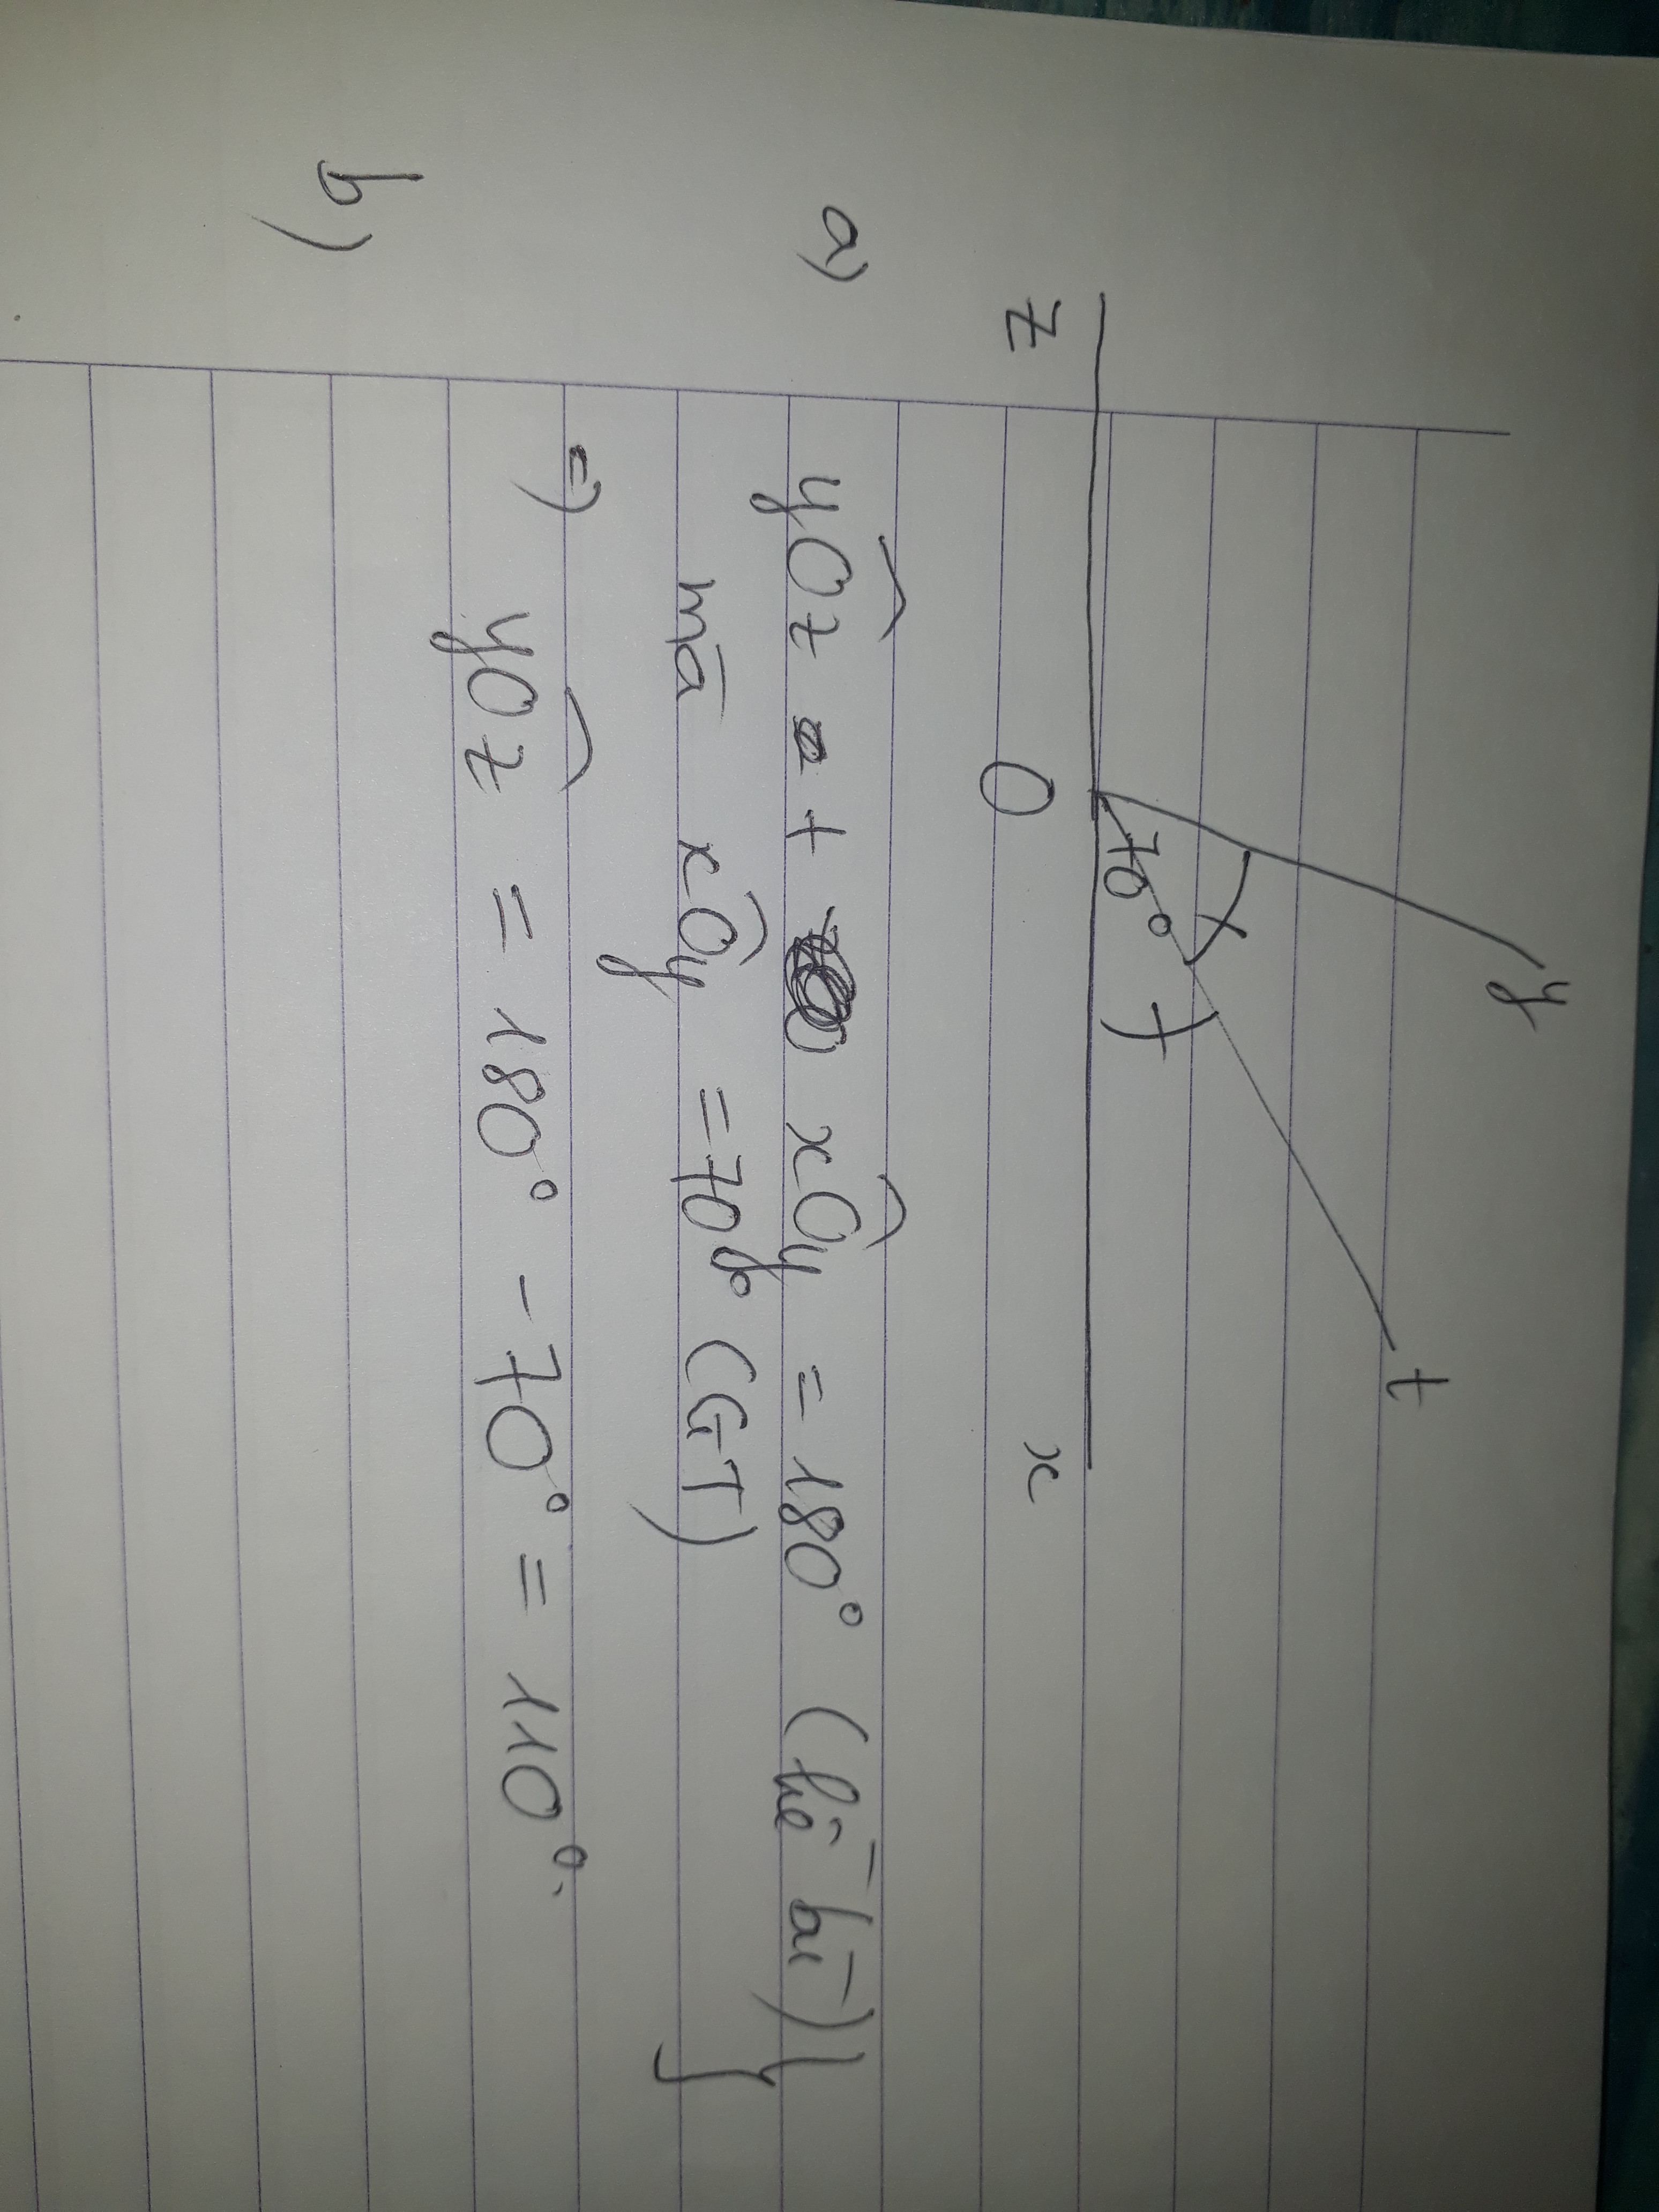 y
t
70°
z
O
x
a) yOz + xOy = 180° (kề bù)
mà xOy = 70° (GT)
=> yOz = 180° - 70° = 110°.
b)